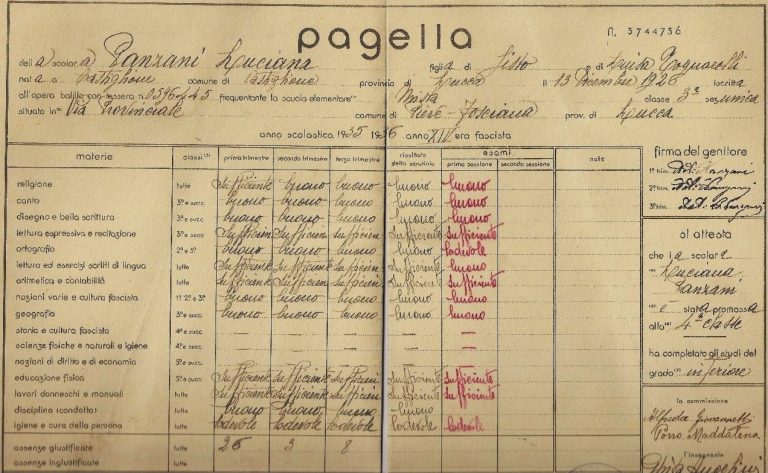 pagella
N. 3744736
dell a scolar a Panzani Luciana figlia di Sisto e di
nata a Castiglione comune di Castiglione provincia di Lucca il 13 Dicembre 1926 iscritta
all'opera balilla con tessera n. 0596445 frequentante la scuola elementare Mista classe 3ª sez. unica
situata in Via Provinciale comune di Pieve Fosciana prov. di Lucca
anno scolastico 1935 1936 anno XIV era fascista
materie classi primo trimestre secondo trimestre terzo trimestre risultato dello scrutinio esami prima sessione seconda sessione note
religione tutte Sufficiente buono buono buono buono
canto 3ª e succ. buono buono buono buono buono
disegno e bella scrittura 3ª e succ. buono buono buono buono buono
lettura espressiva e recitazione 3ª e succ. Sufficiente Sufficiente Sufficiente Sufficiente Sufficiente
ortografia 2ª e 3ª buono buono buono buono lodevole
lettura ed esercizi scritti di lingua tutte Sufficiente Sufficiente Sufficien Sufficiente buono
aritmetica e contabilità tutte Sufficiente Sufficiente Sufficien Sufficiente Sufficiente
nozioni varie e cultura fascista 1ª 2ª e 3ª buono buono buono buono buono
geografia 3ª e succ. buono buono buono buono buono
storia e cultura fascista 4ª e succ. — — — — —
scienze fisiche e naturali e igiene 4ª e succ. — — — — —
nozioni di diritto e di economia 5ª e succ. — — — — —
educazione fisica tutte Sufficiente Sufficiente Sufficien Sufficiente Sufficiente
lavori donneschi e manuali tutte Sufficiente Sufficiente Sufficien Sufficiente Sufficiente
disciplina (condotta) tutte buono buono buono buono
igiene e cura della persona tutte lodevole lodevole lodevole lodevole lodevole
assenze giustificate tutte 25 3 8
assenze ingiustificate tutte
firma del genitore
1º trim. Panzani
2º trim. Panzani
3º trim. Panzani
si attesta
che l a scolar a
Luciana
Panzani
è stata promossa
alla 4ª classe
ha completato gli studi del
grado inferiore
la commissione
Alfredo Giovannetti
Pono Maddalena
l'insegnante
Angelini